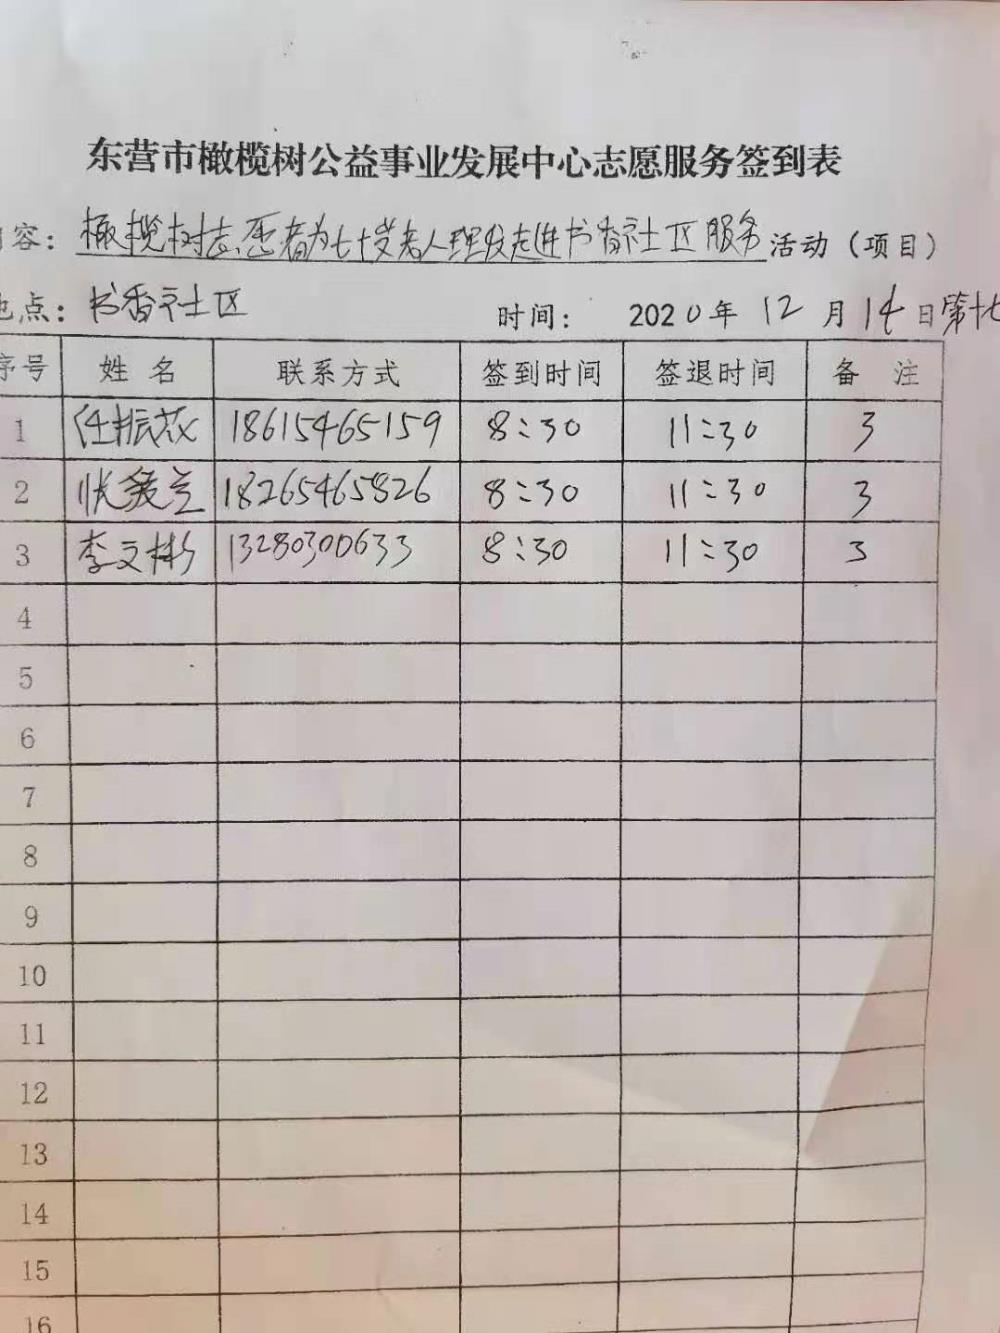 东营市橄榄树公益事业发展中心志愿服务签到表
容：橄榄树志愿者为七十岁老人理发走进书香社区服务活动（项目）
点：书香社区 时间： 2020年12月14日第十
序号 姓名 联系方式 签到时间 签退时间 备注
1 任振 18615465159 8:30 11:30 3
2 张爱兰 18265465826 8:30 11:30 3
3 李文彬 13280300633 8:30 11:30 3
4
5
6
7
8
9
10
11
12
13
14
15
16